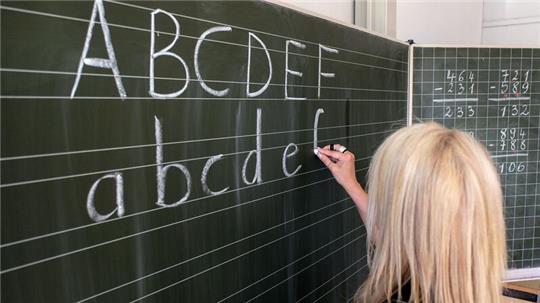 A B C D E F
a b c d e
464
- 231
233
721
- 589
132
894
- 788
106